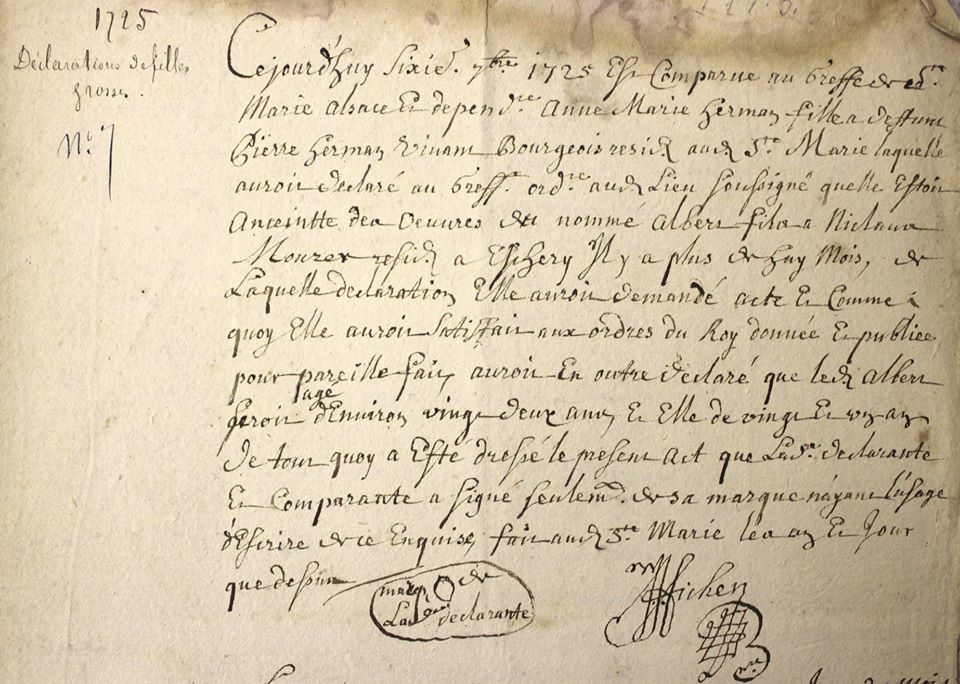 1725
Déclarations de filles
grosses.
N.º 7
Cejourd'huy Sixie. 7bre 1725 Est Comparue au Greffe de ce S.te
Marie alsace Et depend.ce Anne Marie Herman fille a deffunt
Pierre Herman vivant Bourgeois resid. aud. S.te Marie laquelle
auroit declaré au Greff. ord.re aud. Lieu soussigné quelle Estoit
Anceintte des Oeuvres du nommé Albert fils a Niclaus
Mourer resid. a Eschery Il y a plus de huy Mois, de
Laquelle declaration Elle auroit demandé acte Et Comme à
quoy Elle auroit satisfait aux ordres du Roy donnée Et publiée
pour pareille fait, auroit En outre declaré que led. Albert
seroit age d'Environ vingt deux ans Et Elle de vingt Et un an
De tout quoy a Esté dressé le present Act que Lad.te declarante
Et Comparante a signé seulem.t de sa marque n'ayant l'usage
d'Escrire de ce Enquise, fait aud. S.te Marie les an Et Jour
que dessus
marq. O de
Lad. declarante